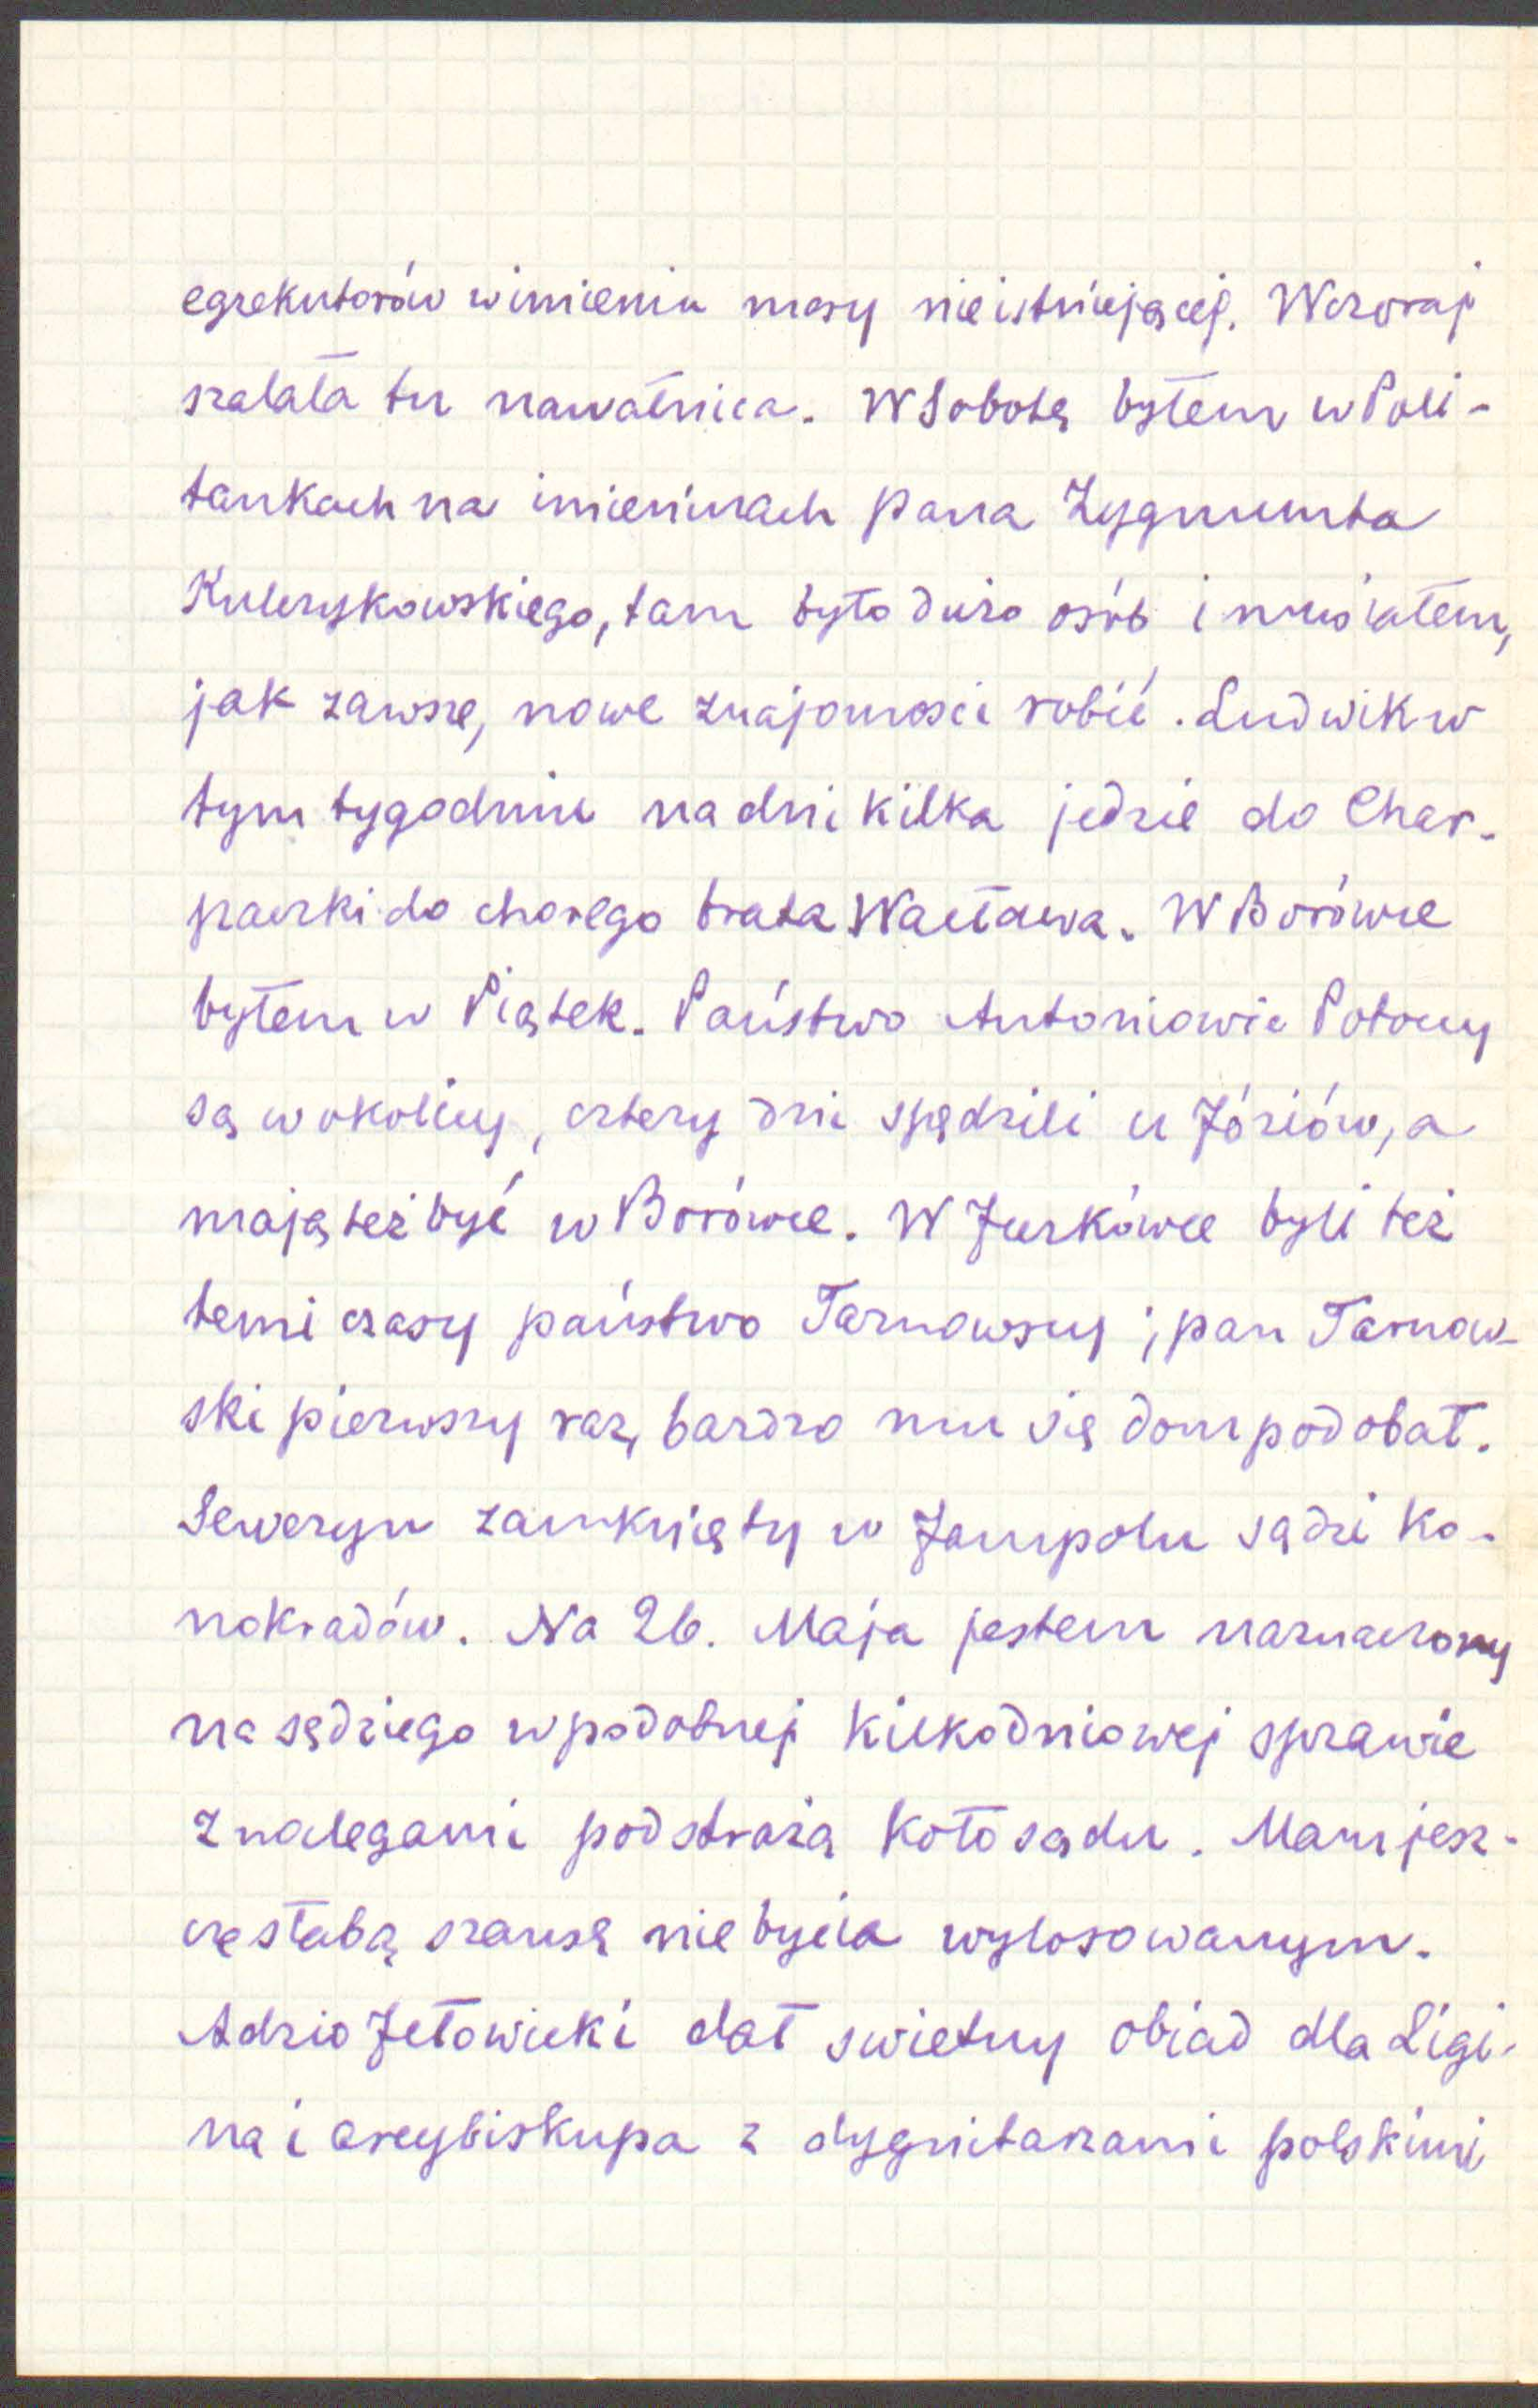 egzekutorów w imieniu masy nieistniejącej. Wczoraj
szalała tu nawałnica. W Sobotę byłem w Poli-
tankach na imieninach pana Zygmunta
Kulczykowskiego, tam było dużo osób i musiałem,
jak zawsze, nowe znajomosci robić. Ludwik w
tym tygodniu na dni kilka jedzie do Char-
paczki do chorego brata Wacława. W Borówce
byłem w Piątek. Państwo Antoniowie Potoccy
są w okolicy, cztery dni spędzili u Józiów, a
mają też być w Borówce. W Jurkówce byli też
temi czasy państwo Tarnowscy; pan Tarnow-
ski pierwszy raz, bardzo mu się dom podobał.
Seweryn zamknięty w Jampolu sądzi ko-
nokradów. Na 26. Maja jestem naznaczony
na sędziego w podobnej kilkodniowej sprawie
z nolegami pod strażą koło sądu. Mam jesz-
czę słabą szansę nie bycia wylosowanym.
Adzio Jełowicki dał swietny obiad dla Ligi-
na i arcybiskupa z dygnitarzami polskimi